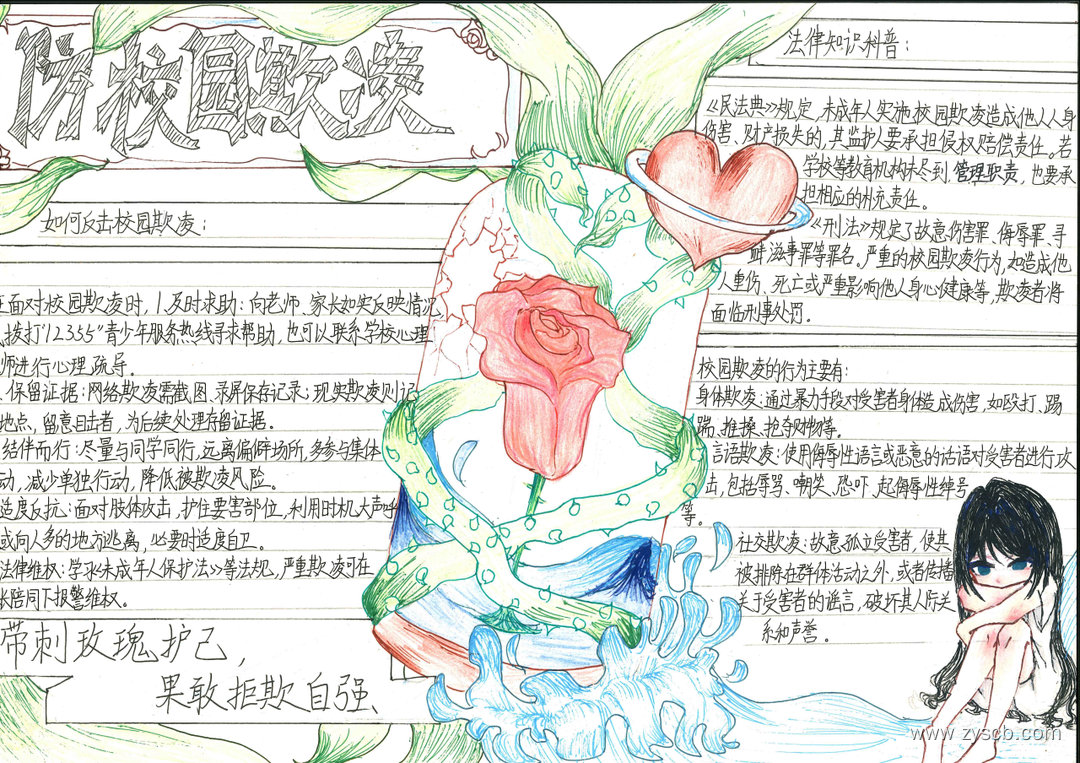 防校园欺凌
如何反击校园欺凌:
在面对校园欺凌时,1及时求助:向老师、家长如实反映情况,
拨打"12355"青少年服务热线寻求帮助,也可以联系学校心理
师进行心理疏导。
保留证据:网络欺凌需截图、录屏保存记录;现实欺凌则记
地点,留意目击者,为后续处理存留证据。
结伴而行:尽量与同学同行,远离偏僻场所,多参与集体
动,减少单独行动,降低被欺凌风险。
适度反抗:面对肢体攻击,护住要害部位,利用时机大声呼
或向人多的地方逃离,必要时适度自卫。
法律维权:学习《未成年人保护法》等法规,严重欺凌可在
长陪同下报警维权。
带刺玫瑰护己,
果敢拒欺自强、
法律知识科普:
《民法典》规定,未成年人实施校园欺凌造成他人人身
伤害、财产损失的,其监护人要承担侵权赔偿责任。若
学校等教育机构未尽到管理职责,也要承
担相应的补充责任。
《刑法》规定了故意伤害罪、侮辱罪、寻
衅滋事罪等罪名。严重的校园欺凌行为,如造成他
人重伤、死亡或严重影响他人身心健康等,欺凌者将
面临刑事处罚。
校园欺凌的行为主要有:
身体欺凌:通过暴力手段对受害者身体造成伤害,如殴打、踢
踹、推搡、抢夺财物等。
言语欺凌:使用侮辱性语言或恶意的话语对受害者进行攻
击,包括辱骂、嘲笑、恐吓、起侮辱性绰号
等。
社交欺凌:故意孤立受害者,使其
被排除在群体活动之外,或者传播
关于受害者的谣言,破坏其人际关
系和声誉。
www.zyscb.com